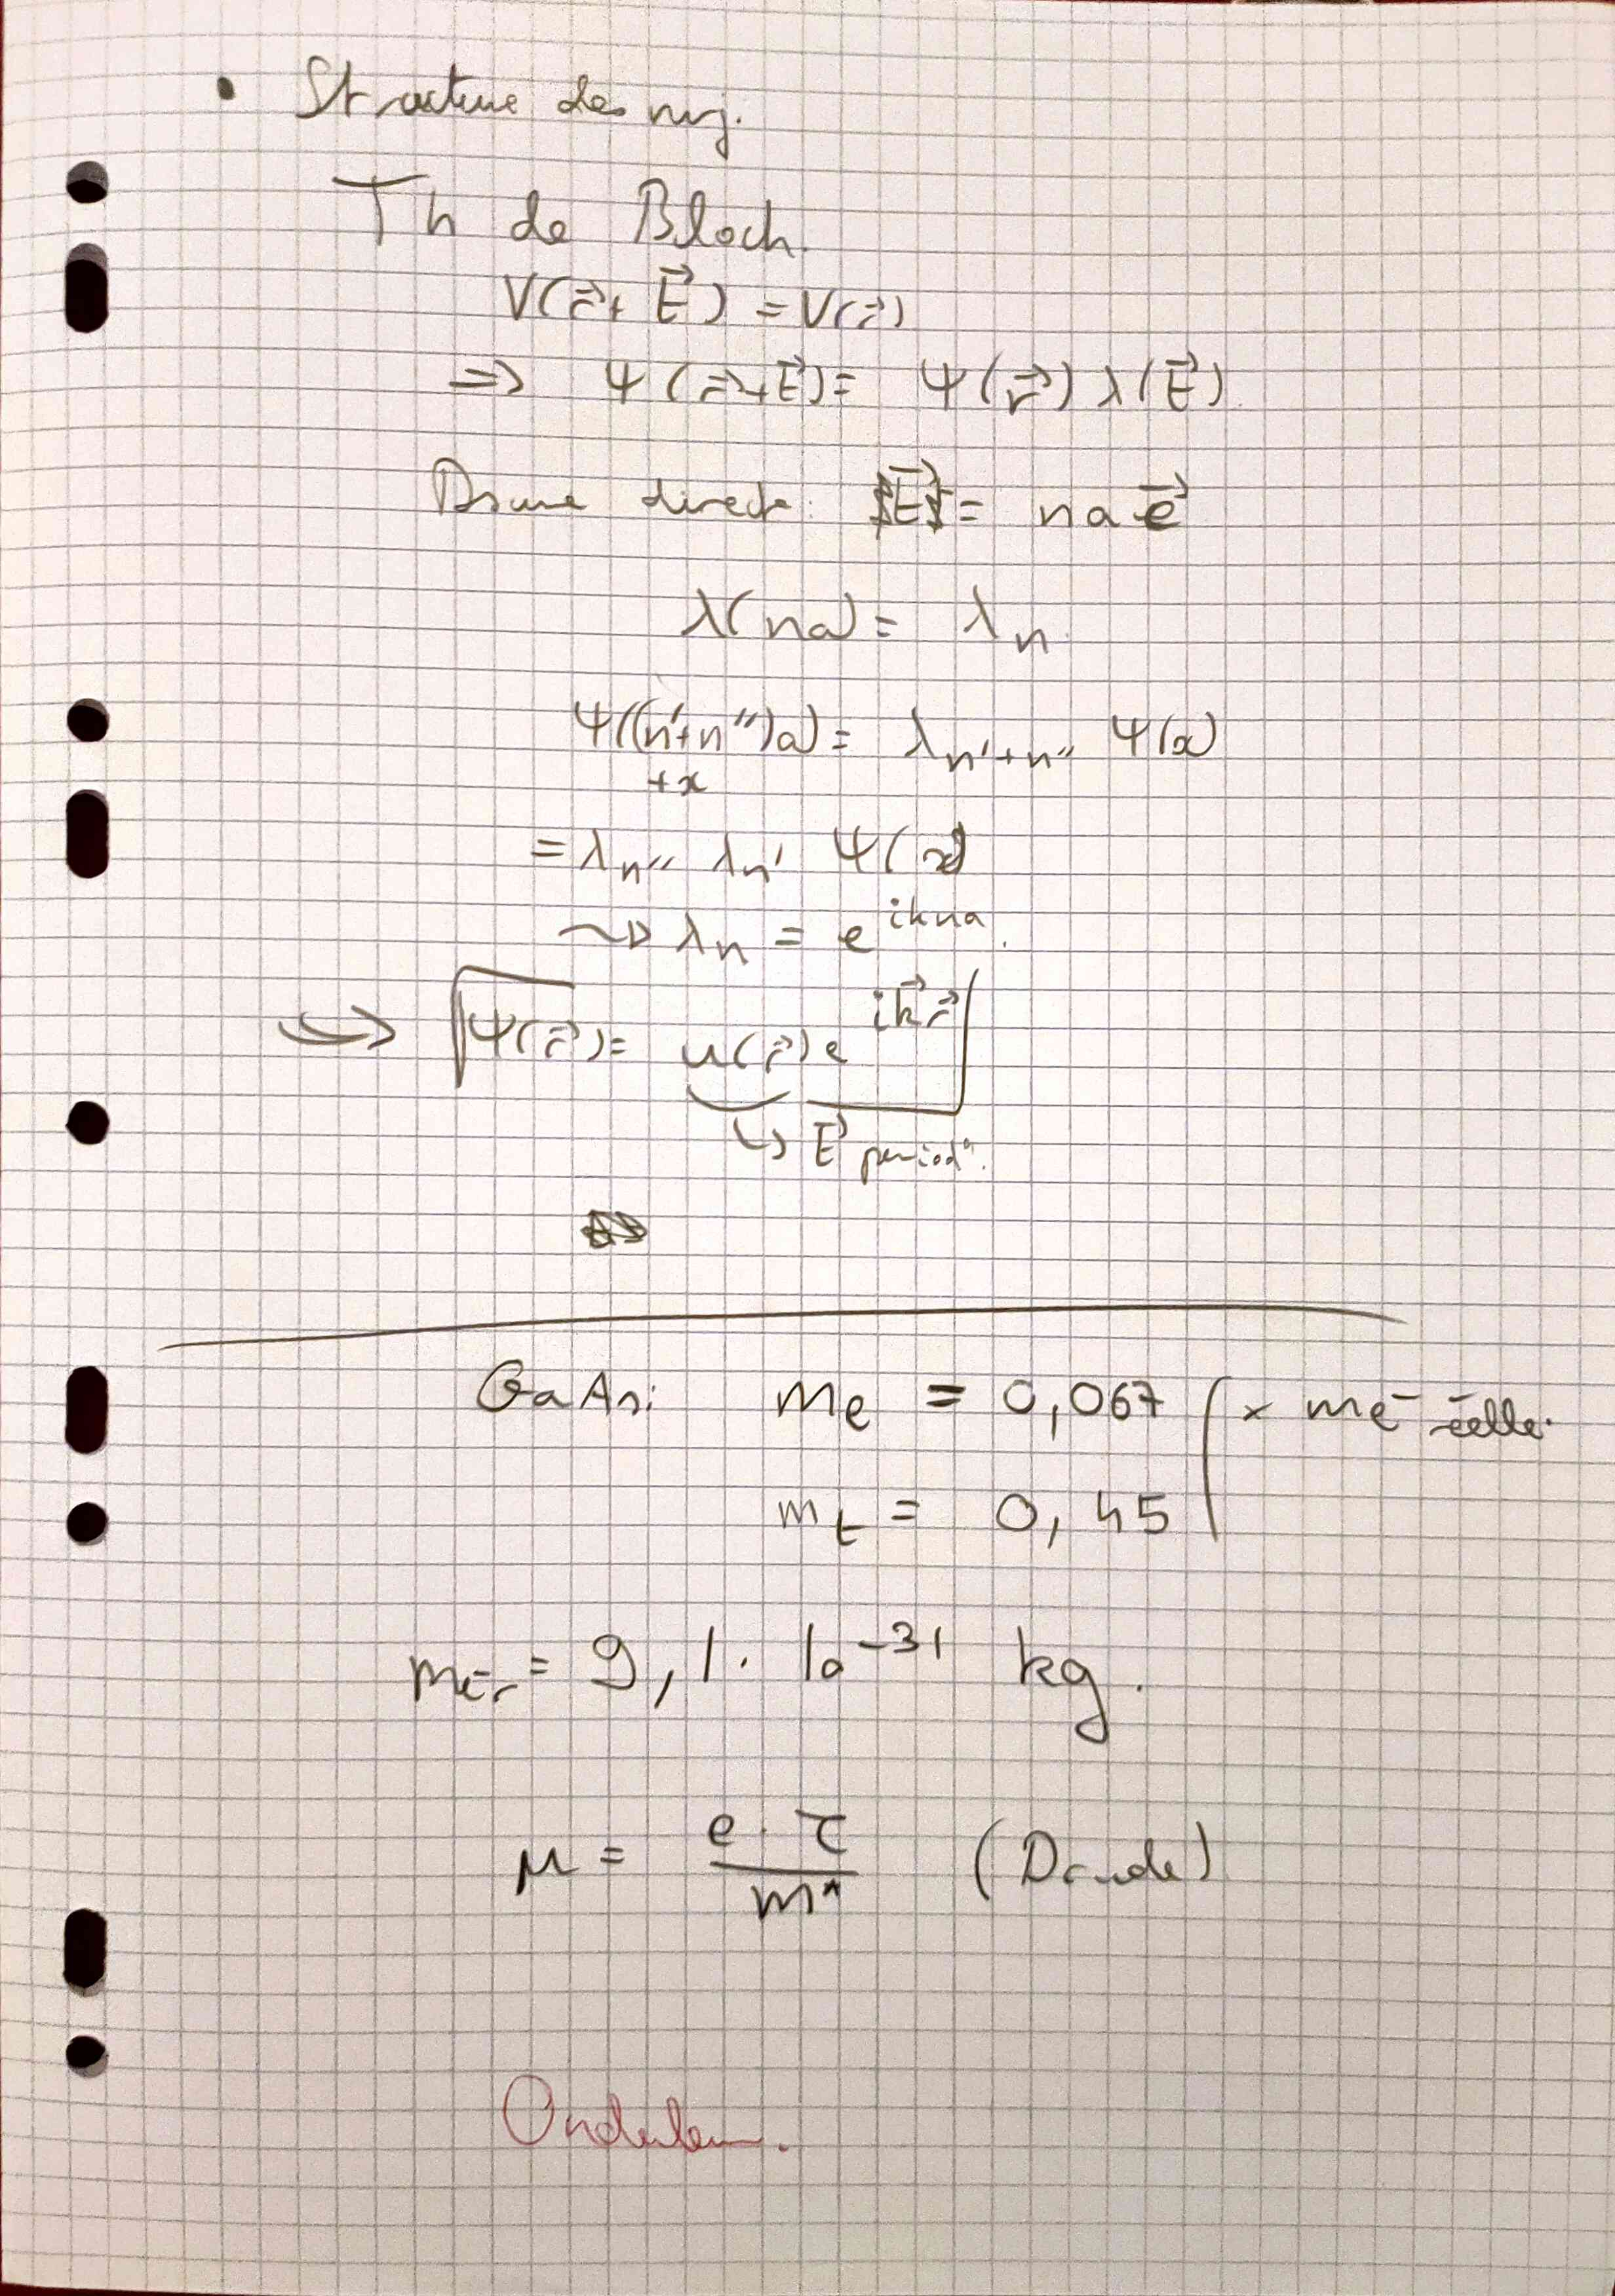 • Structure des
Th de Bloch.
V(r⃗ + t⃗) = V(r⃗)
=> Ψ(r⃗+t⃗) = Ψ(r⃗) λ(t⃗)
directe : t⃗ = na e⃗
λ(na) = λn
Ψ((n'+n'')a) = λn'+n'' Ψ(x)
+x
= λn'' λn' Ψ(x)
⇝ λn = e^ikna.
=> Ψ(r⃗) = u(r⃗) e^ik⃗r⃗
↳ t⃗ périod°.
GaAs: me = 0,067 ) × me- réelle.
mt = 0,45
me-r = 9,1 . 10^-31 kg.
μ = e.τ / m* (Drude)
Onduleur.